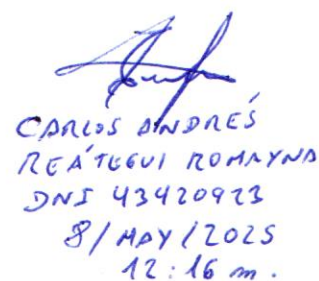 CARLOS ANDRÉS
REÁTEGUI ROMAYNA
DNI 43420923
8/MAY/2025
12:16 m.